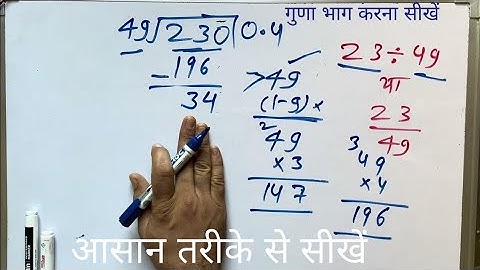 गुणा भाग करना सीखें
49)230(0.4
-196
34
>49
(1-9)×
2
49
×3
147
23÷49
या
23
49
3
49
×4
196
आसान तरीके से सीखें